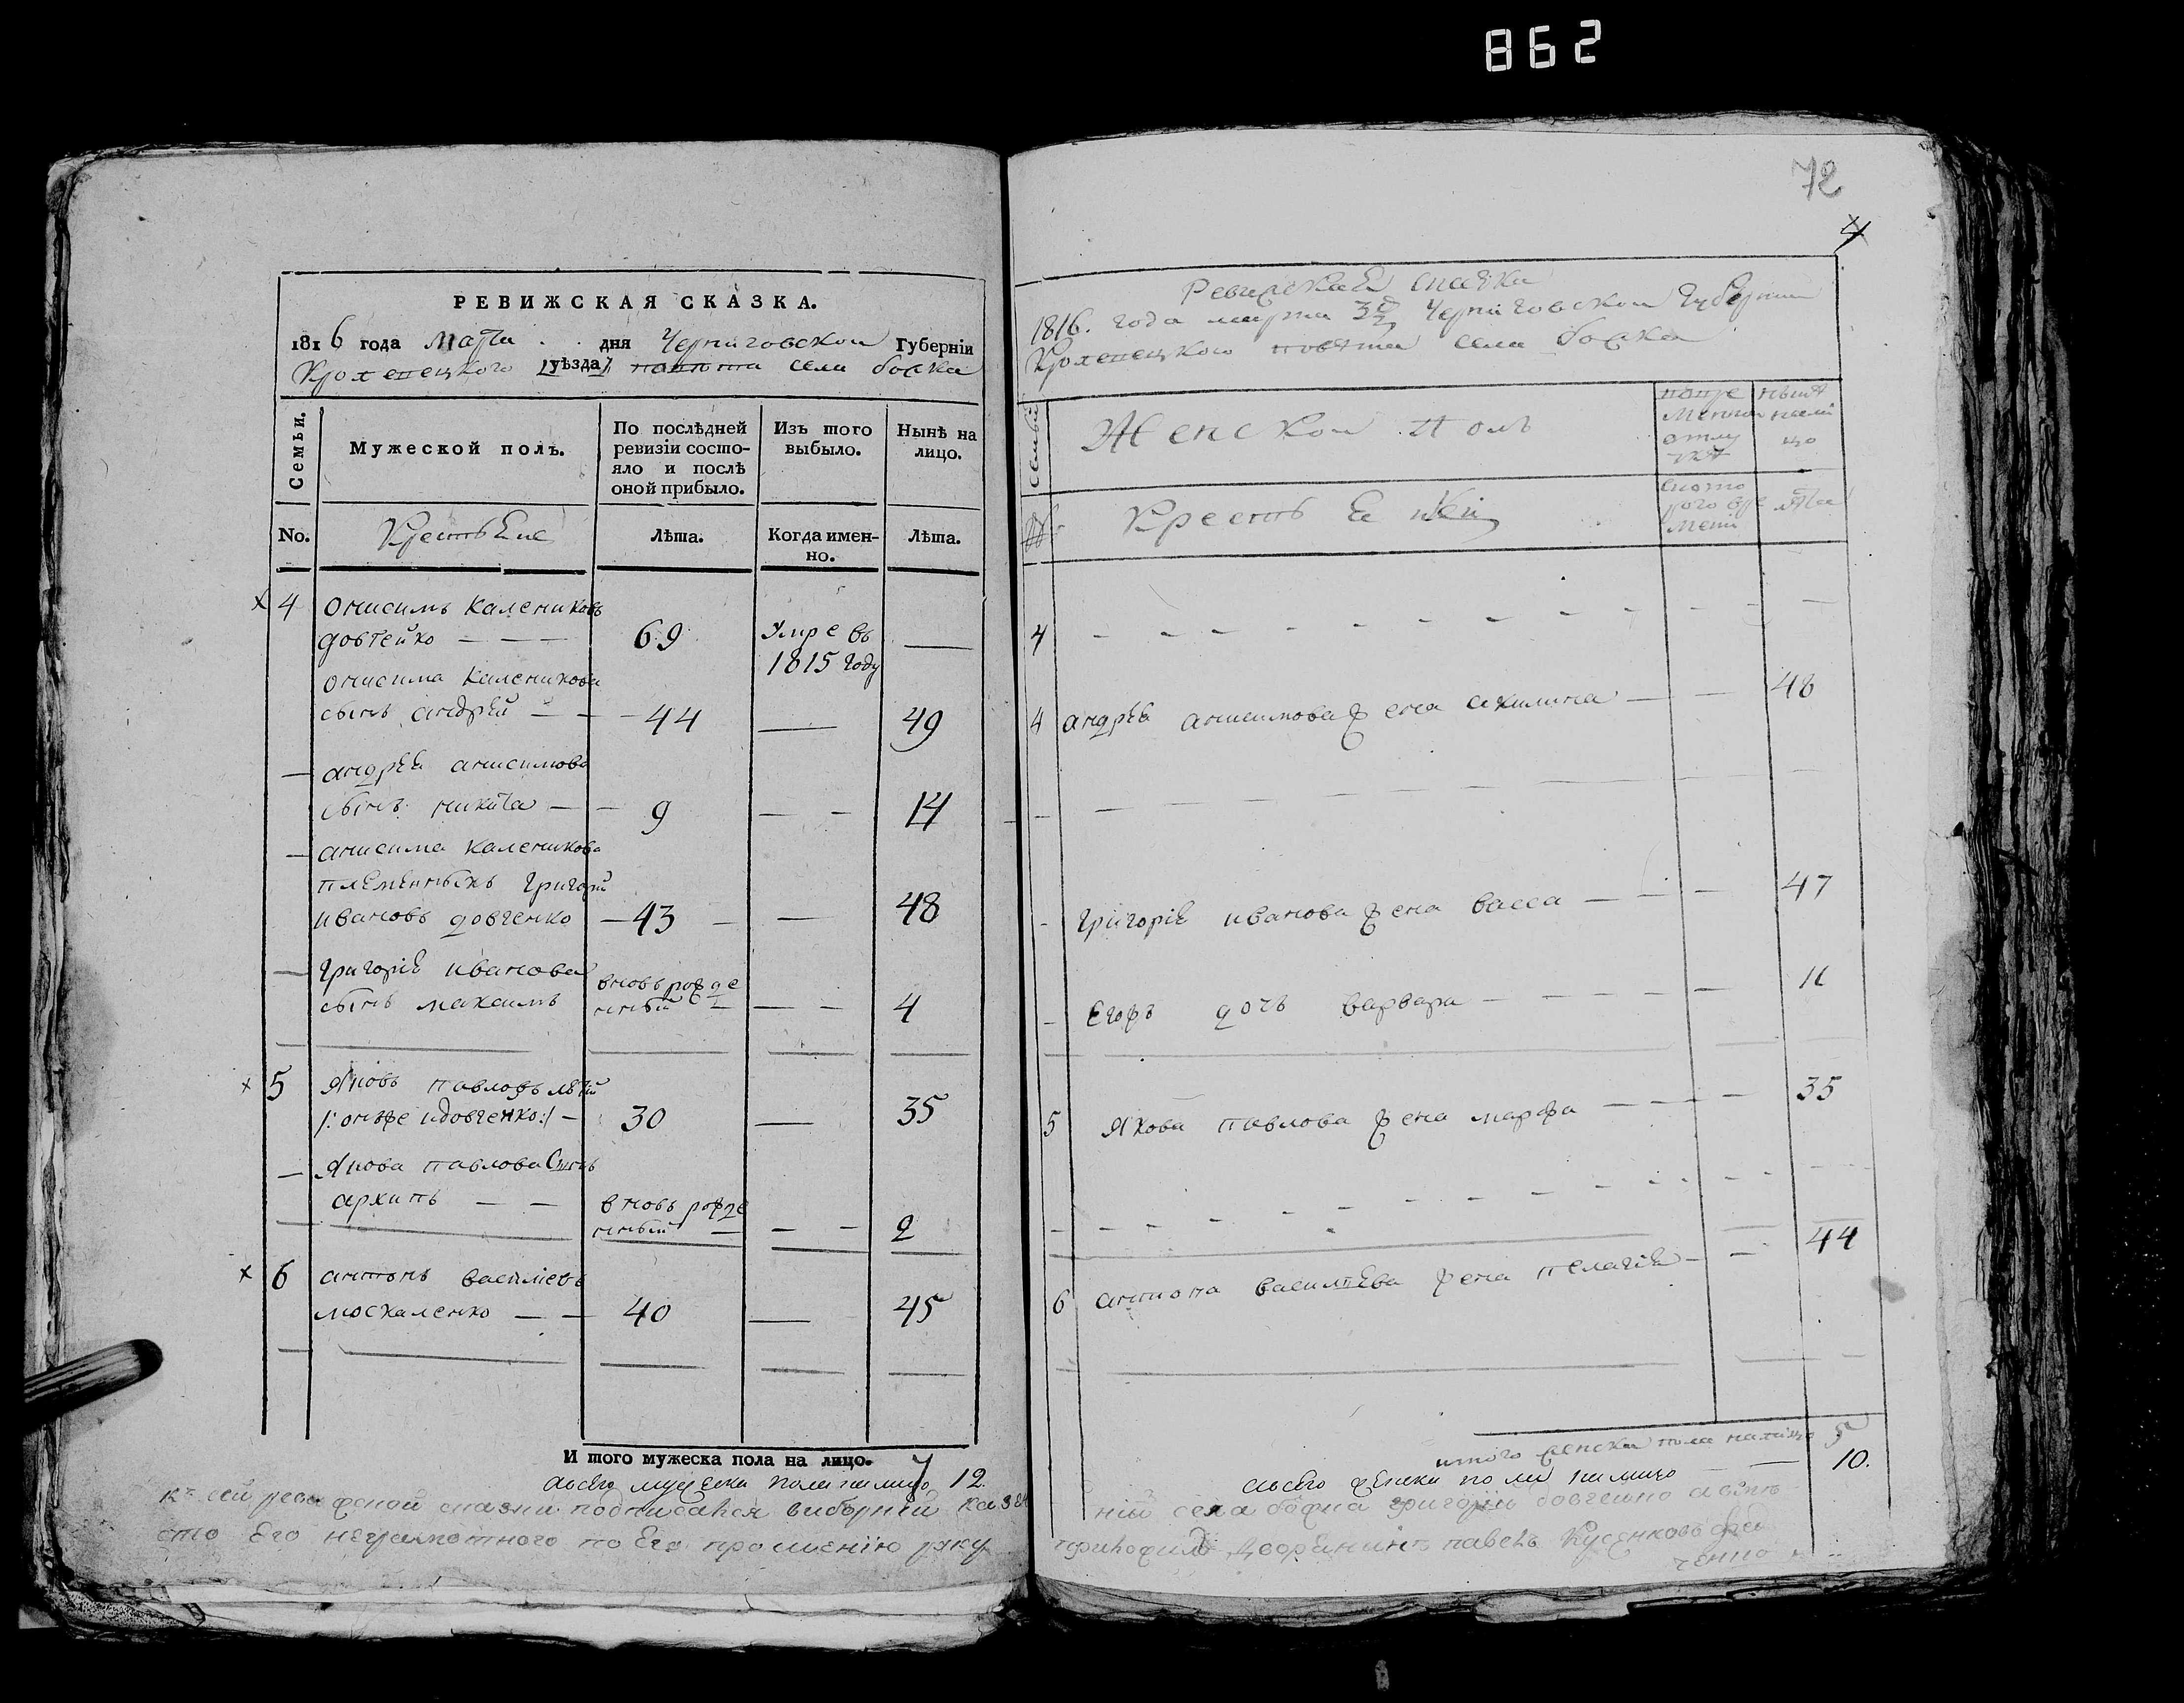 862
РЕВИЖСКАЯ СКАЗКА.
1816 года марта дня Черниговской Губерніи
Кролевецкого /уѣзда/ повѣта села боѳка
Семьи. Мужеской полъ. По послѣдней ревизіи состояло и послѣ оной прибыло. Изъ того выбыло. Нынѣ на лицо.
No. Крестьяне Лѣта. Когда именно. Лѣта.
4 онисимъ калениковъ
довгенко — — — 69 Умре въ —
1815 году
онисима каленикова
сынъ андрей — — 44 — 49
— андрея анисимова
сынъ никита — — 9 — — 14
— анисима каленикова
племенныкъ григорій
ивановъ довгенко — 43 — — 48
— григорія иванова вновь рожде
сынъ максимъ нный — — 4
5 Яковъ павловъ
/: онъже идовгенко :/ — 30 — 35
— Якова павлова сынъ
архипъ — — вновь рожде
нный — — — 2
6 антонъ василіевъ
москаленко — — 40 — 45
И того мужеска пола на лицо. 7
всего мужеска пола на лицо 12.
къ сей ревижской сказки подписался виборній каз
сто Его неграмотного по Его прошенію руку
72
4
Ревижская сказка
1816. года марта Черниговской Губерніи
Кролевецкого повѣта села боѳка
Женской полъ
Крестьянки лѣта
4 — — — — — — — — — — — —
4 андрея анисимова жена акилина — — 48
— — — — — — — — — —
- григорія иванова жена васса — — — 47
- Егожъ дочь варвара — — — — — 11
5 Якова павлова жена марфа — — — — 35
- — — — — — — — — — — —
6 антона василіева жена пелагія — — 44
итого женска пола налицо 5
всего женска пола налицо — — 10.
ній села григорій довгенко авмѣ
приложилъ Дворянинъ павелъ